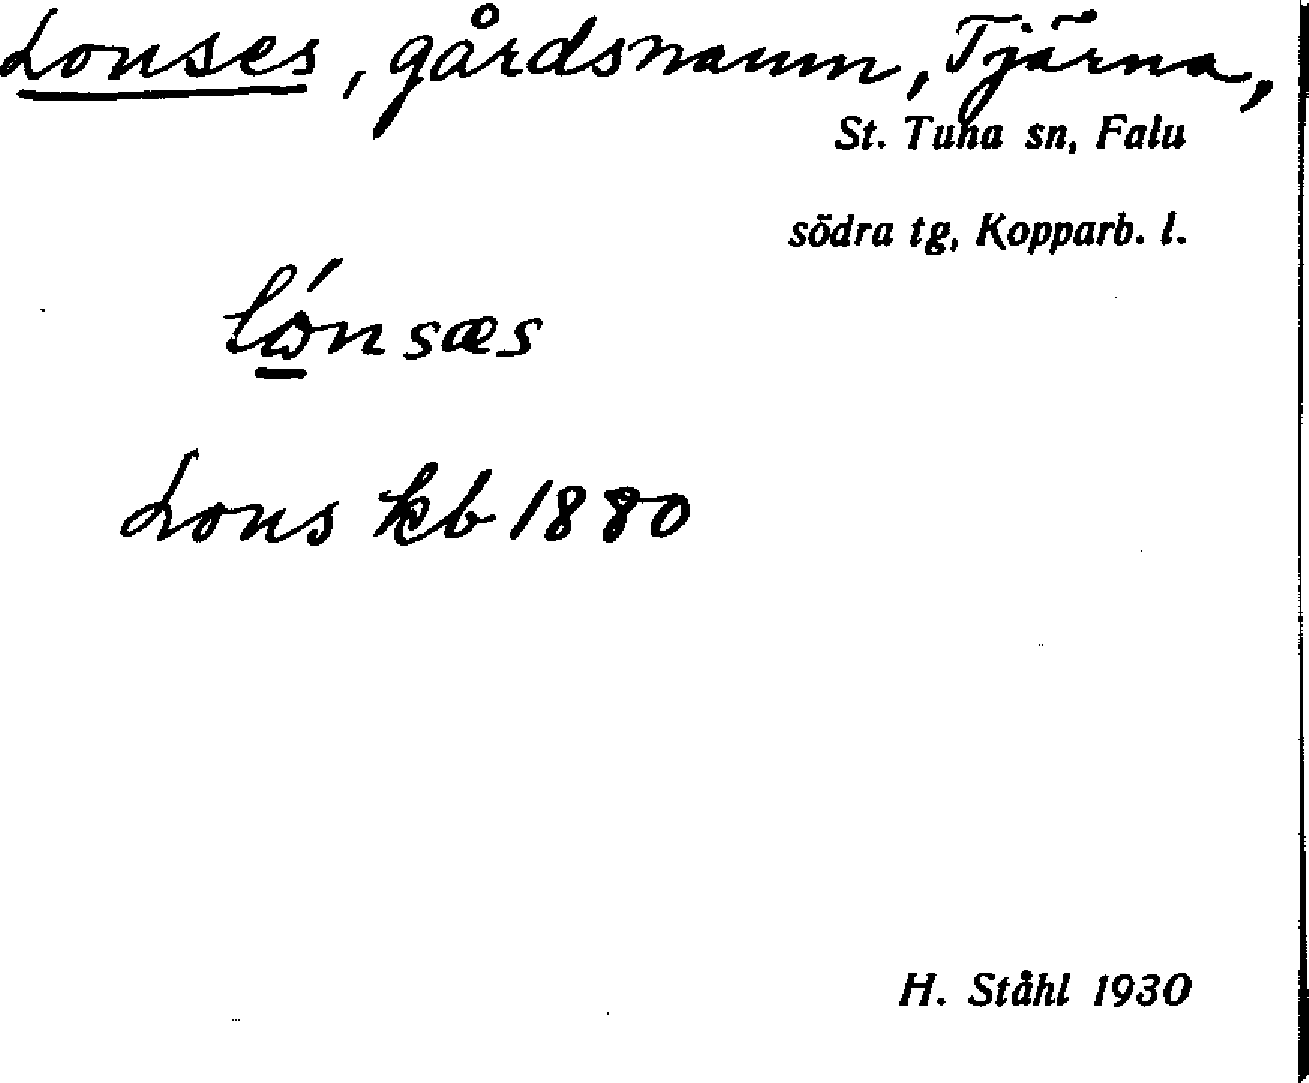 Lonses, gårdsnamn, Tjärna,
St. Tuna sn, Falu
södra tg, Kopparb. l.
lónsæs
Lons kb 1880
H. Ståhl 1930